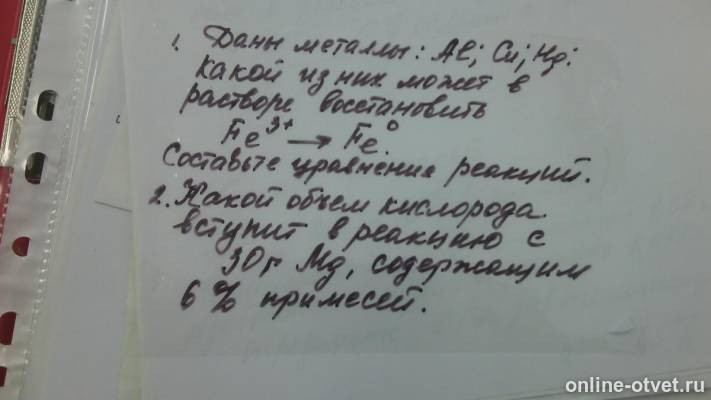 1. Даны металлы: Al; Cu; Hg:
Какой из них может в
растворе восстановить
Fe³⁺ → Fe⁰.
Составьте уравнение реакций.
2. Какой объем кислорода.
вступит в реакцию с
30г Mg, содержащим
6 % примесей.
online-otvet.ru